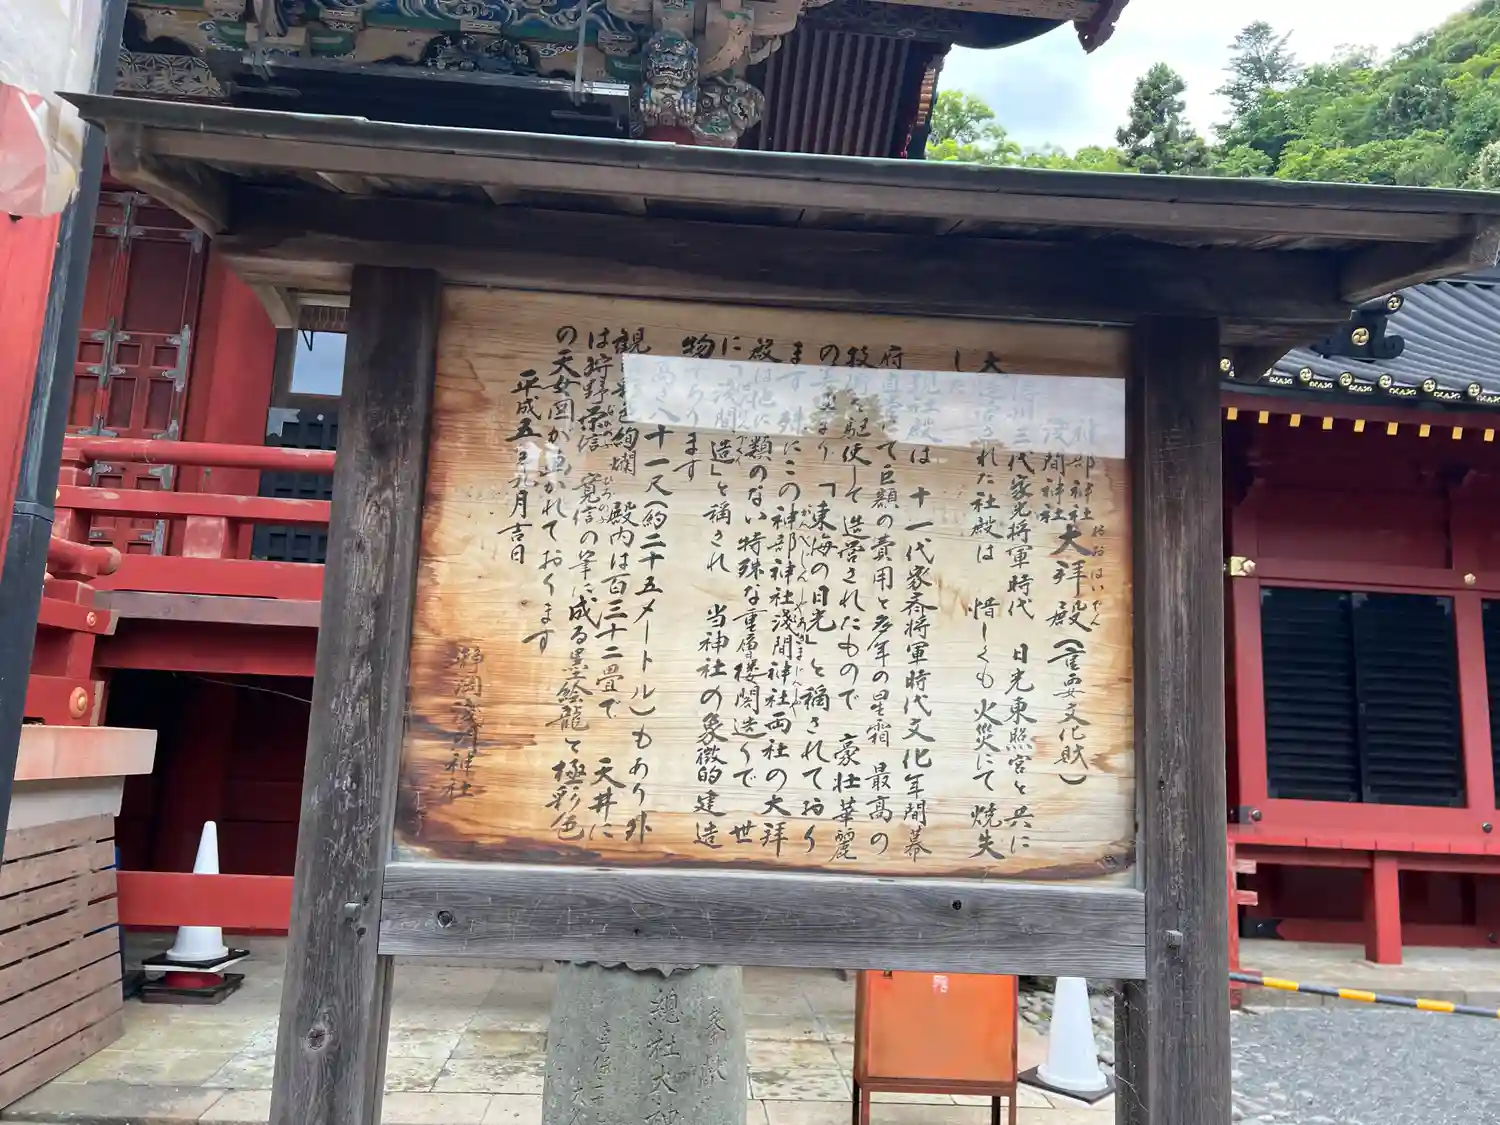 神部神社
浅間神社
大拝殿（重要文化財）
おおはいでん
三代家光将軍時代　日光東照宮と共に
された社殿は　惜しくも火災にて焼失
した
現社殿は　十一代家斉将軍時代文化年間幕
府直営にて巨額の費用と多年の星霜　最高の
技術を駆使して造営されたもので　豪壮華麗
の　　まり「東海の日光」と称されており
ます　殊にこの神部神社浅間神社両社の大拝
殿は他に類のない特殊な重層楼閣造りで　世
に「浅間造」と称され　当神社の象徴的建造
物であります
高さ八十一尺（約二十五メートル）もあり外
観　　色絢爛　殿内は百三十二畳で　天井に
は狩野栄信　寛信の筆に成る墨絵龍と極彩色
の天女図が画かれております
平成五年九月吉日
静岡浅間神社
奉献
總社大神
享保